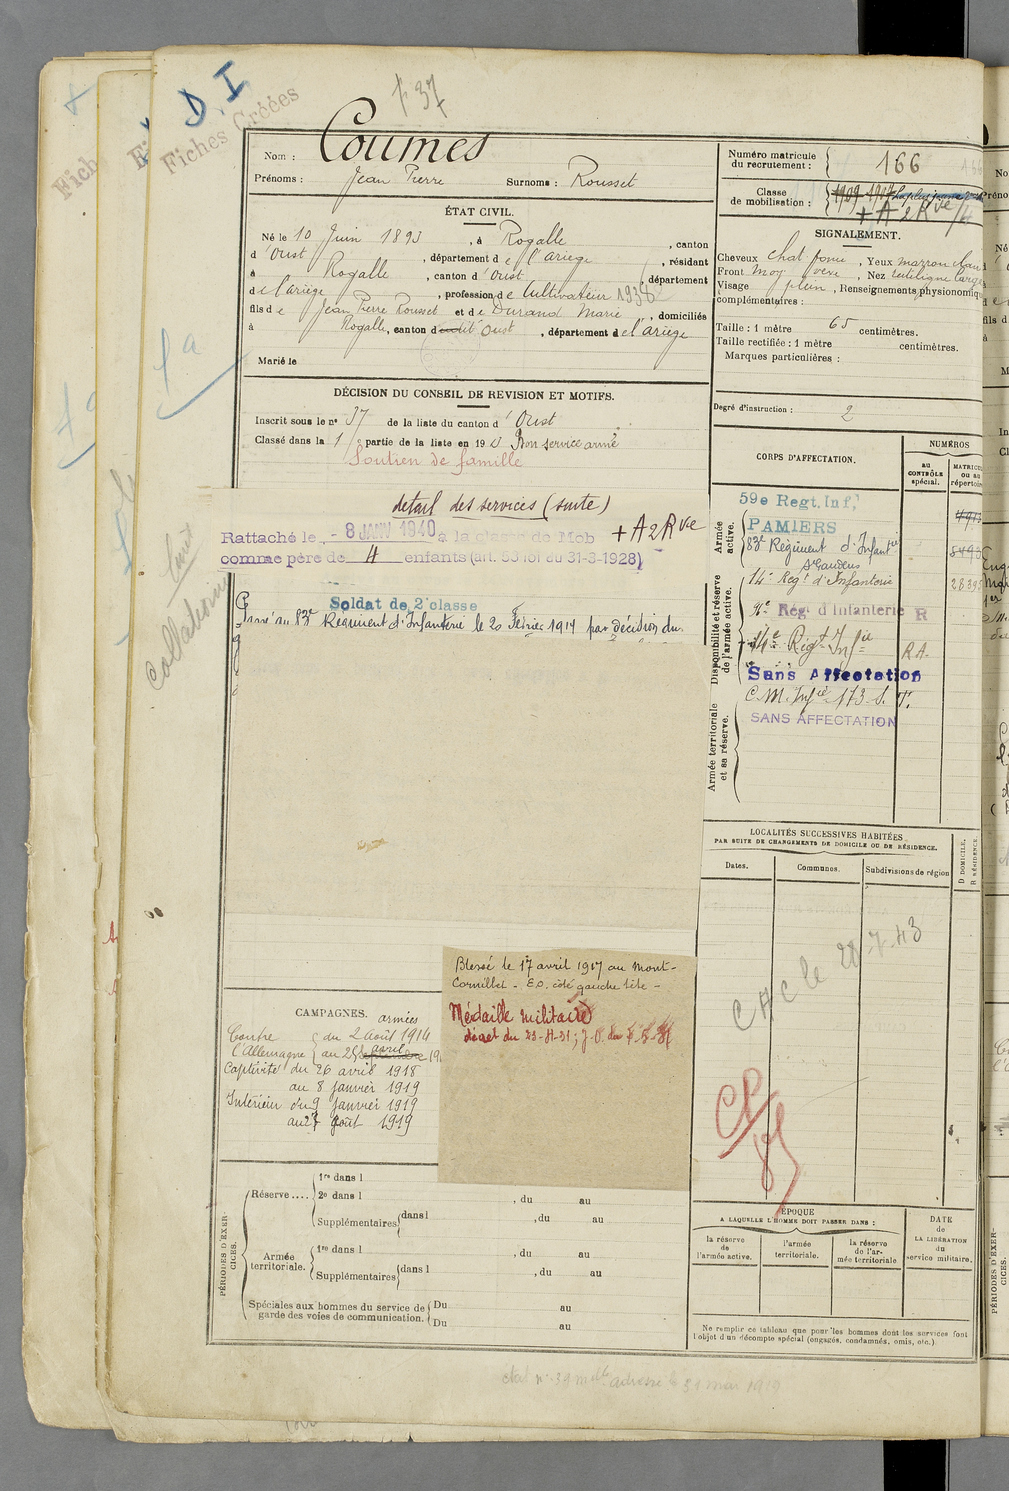 F 37
D. I
Fiches Créées
Nom : Coumes
Prénoms : Jean Pierre Surnoms : Rousset
Numéro matricule du recrutement : 166
Classe de mobilisation : 1909
+ A 2 Rve
ÉTAT CIVIL.
Né le 10 Juin 1893, à Rogalle, canton
d'Oust, département de l'Ariège, résidant
à Rogalle, canton d'Oust, département
de l'Ariège, profession de Cultivateur 1938
fils de Jean Pierre Rousset et de Durand Marie, domiciliés
à Rogalle, canton d'Oust, département de l'Ariège
Marié le
SIGNALEMENT.
Cheveux chat. foncé, Yeux marron clair
Front moy. , Nez
Visage plein, Renseignements physionomiq
complémentaires :
Taille : 1 mètre 65 centimètres.
Taille rectifiée : 1 mètre centimètres.
Marques particulières :
Degré d'instruction : 2
DÉCISION DU CONSEIL DE REVISION ET MOTIFS.
Inscrit sous le n° 37 de la liste du canton d'Oust
Classé dans la 1re partie de la liste en 19 Bon service armé
Soutien de famille
détail des services (suite)
Rattaché le - 8 JANV 1940 à la classe de Mob + A 2 Rve
comme père de 4 enfants (art. 58 loi du 31-3-1928)
Soldat de 2e classe
Passé au 83e Régiment d'Infanterie le 20 Février 1917 par décision du
CORPS D'AFFECTATION.
NUMÉROS
au CONTRÔLE spécial.
MATRICU OU au répertoir
Armée active.
59e Regt. Inf,
PAMIERS
83e Régiment d'Infantrie
St Gaudens
Disponibilité et réserve de l'armée active.
14e Regt d'Infanterie
Rég. d'Infanterie R
14e Régt Infie R.A.
Sans Affectation
Armée territoriale et sa réserve.
C.M. Infie 173 S. T.
SANS AFFECTATION
LOCALITÉS SUCCESSIVES HABITÉES
PAR SUITE DE CHANGEMENTS DE DOMICILE OU DE RÉSIDENCE.
Dates. Communes. Subdivisions de région
D DOMICILE. R RÉSIDENCE.
C H C le 28-7-43
Blessé le 17 avril 1917 au Mont-
Cornillet - E.O. côté gauche tête -
Médaille militaire
décret du
CAMPAGNES.
armées
Contre l'Allemagne du 2 août 1914
au 25 avril 19
Captivité du 26 avril 1918
au 8 janvier 1919
Intérieur du 9 janvier 1919
au 27 août 1919
PÉRIODES D'EXERCICES.
Réserve .... 1re dans l
2e dans l , du au
Supplémentaires dans l , du au
Armée territoriale. 1re dans l , du au
Supplémentaires dans l , du au
Spéciales aux hommes du service de garde des voies de communication. Du au
Du au
ÉPOQUE
A LAQUELLE L'HOMME DOIT PASSER DANS :
la réserve de l'armée active.
l'armée territoriale.
la réserve de l'armée territoriale
DATE de LA LIBÉRATION du service militaire.
Ne remplir ce tableau que pour les hommes dont les services font
l'objet d'un décompte spécial (engagés, condamnés, omis, etc.)
adressé le 31 mai 1919